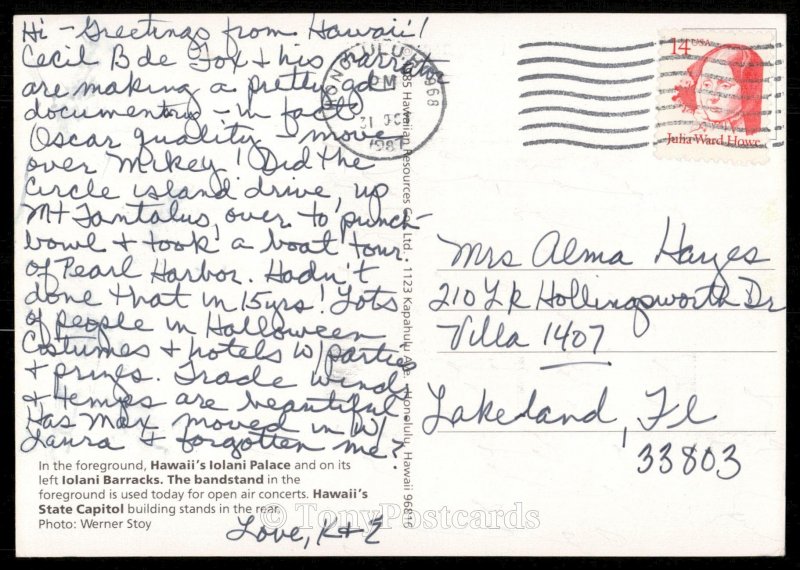 Hi - Greetings from Hawaii!
Cecil B de Fox & his
are making a pretty gd
documentary - in fact
Oscar quality - move
over Mikey! Did the
Circle island drive, up
Mt Tantalus, over to punch-
bowl & took a boat tour
of Pearl Harbor. Hadn't
done that in 15yrs! Lots
of people in Halloween
Costumes & hotels w/ parties
& prizes. Trade winds
& temps are beautiful.
Has Max moved in w/
Laura & forgotten me?
Love, K&E
In the foreground, Hawaii's Iolani Palace and on its
left Iolani Barracks. The bandstand in the
foreground is used today for open air concerts. Hawaii's
State Capitol building stands in the rear.
Photo: Werner Stoy
1985 Hawaiian Resources Co., Ltd. • 1123 Kapahulu Ave. • Honolulu, Hawaii 96816
HONOLULU 968
PM
31 OC
1987
14 USA
Julia Ward Howe
Mrs Alma Hayes
210 Lk Hollingsworth Dr
Villa 1407
Lakeland, Fl
33803
© TonyPostcards